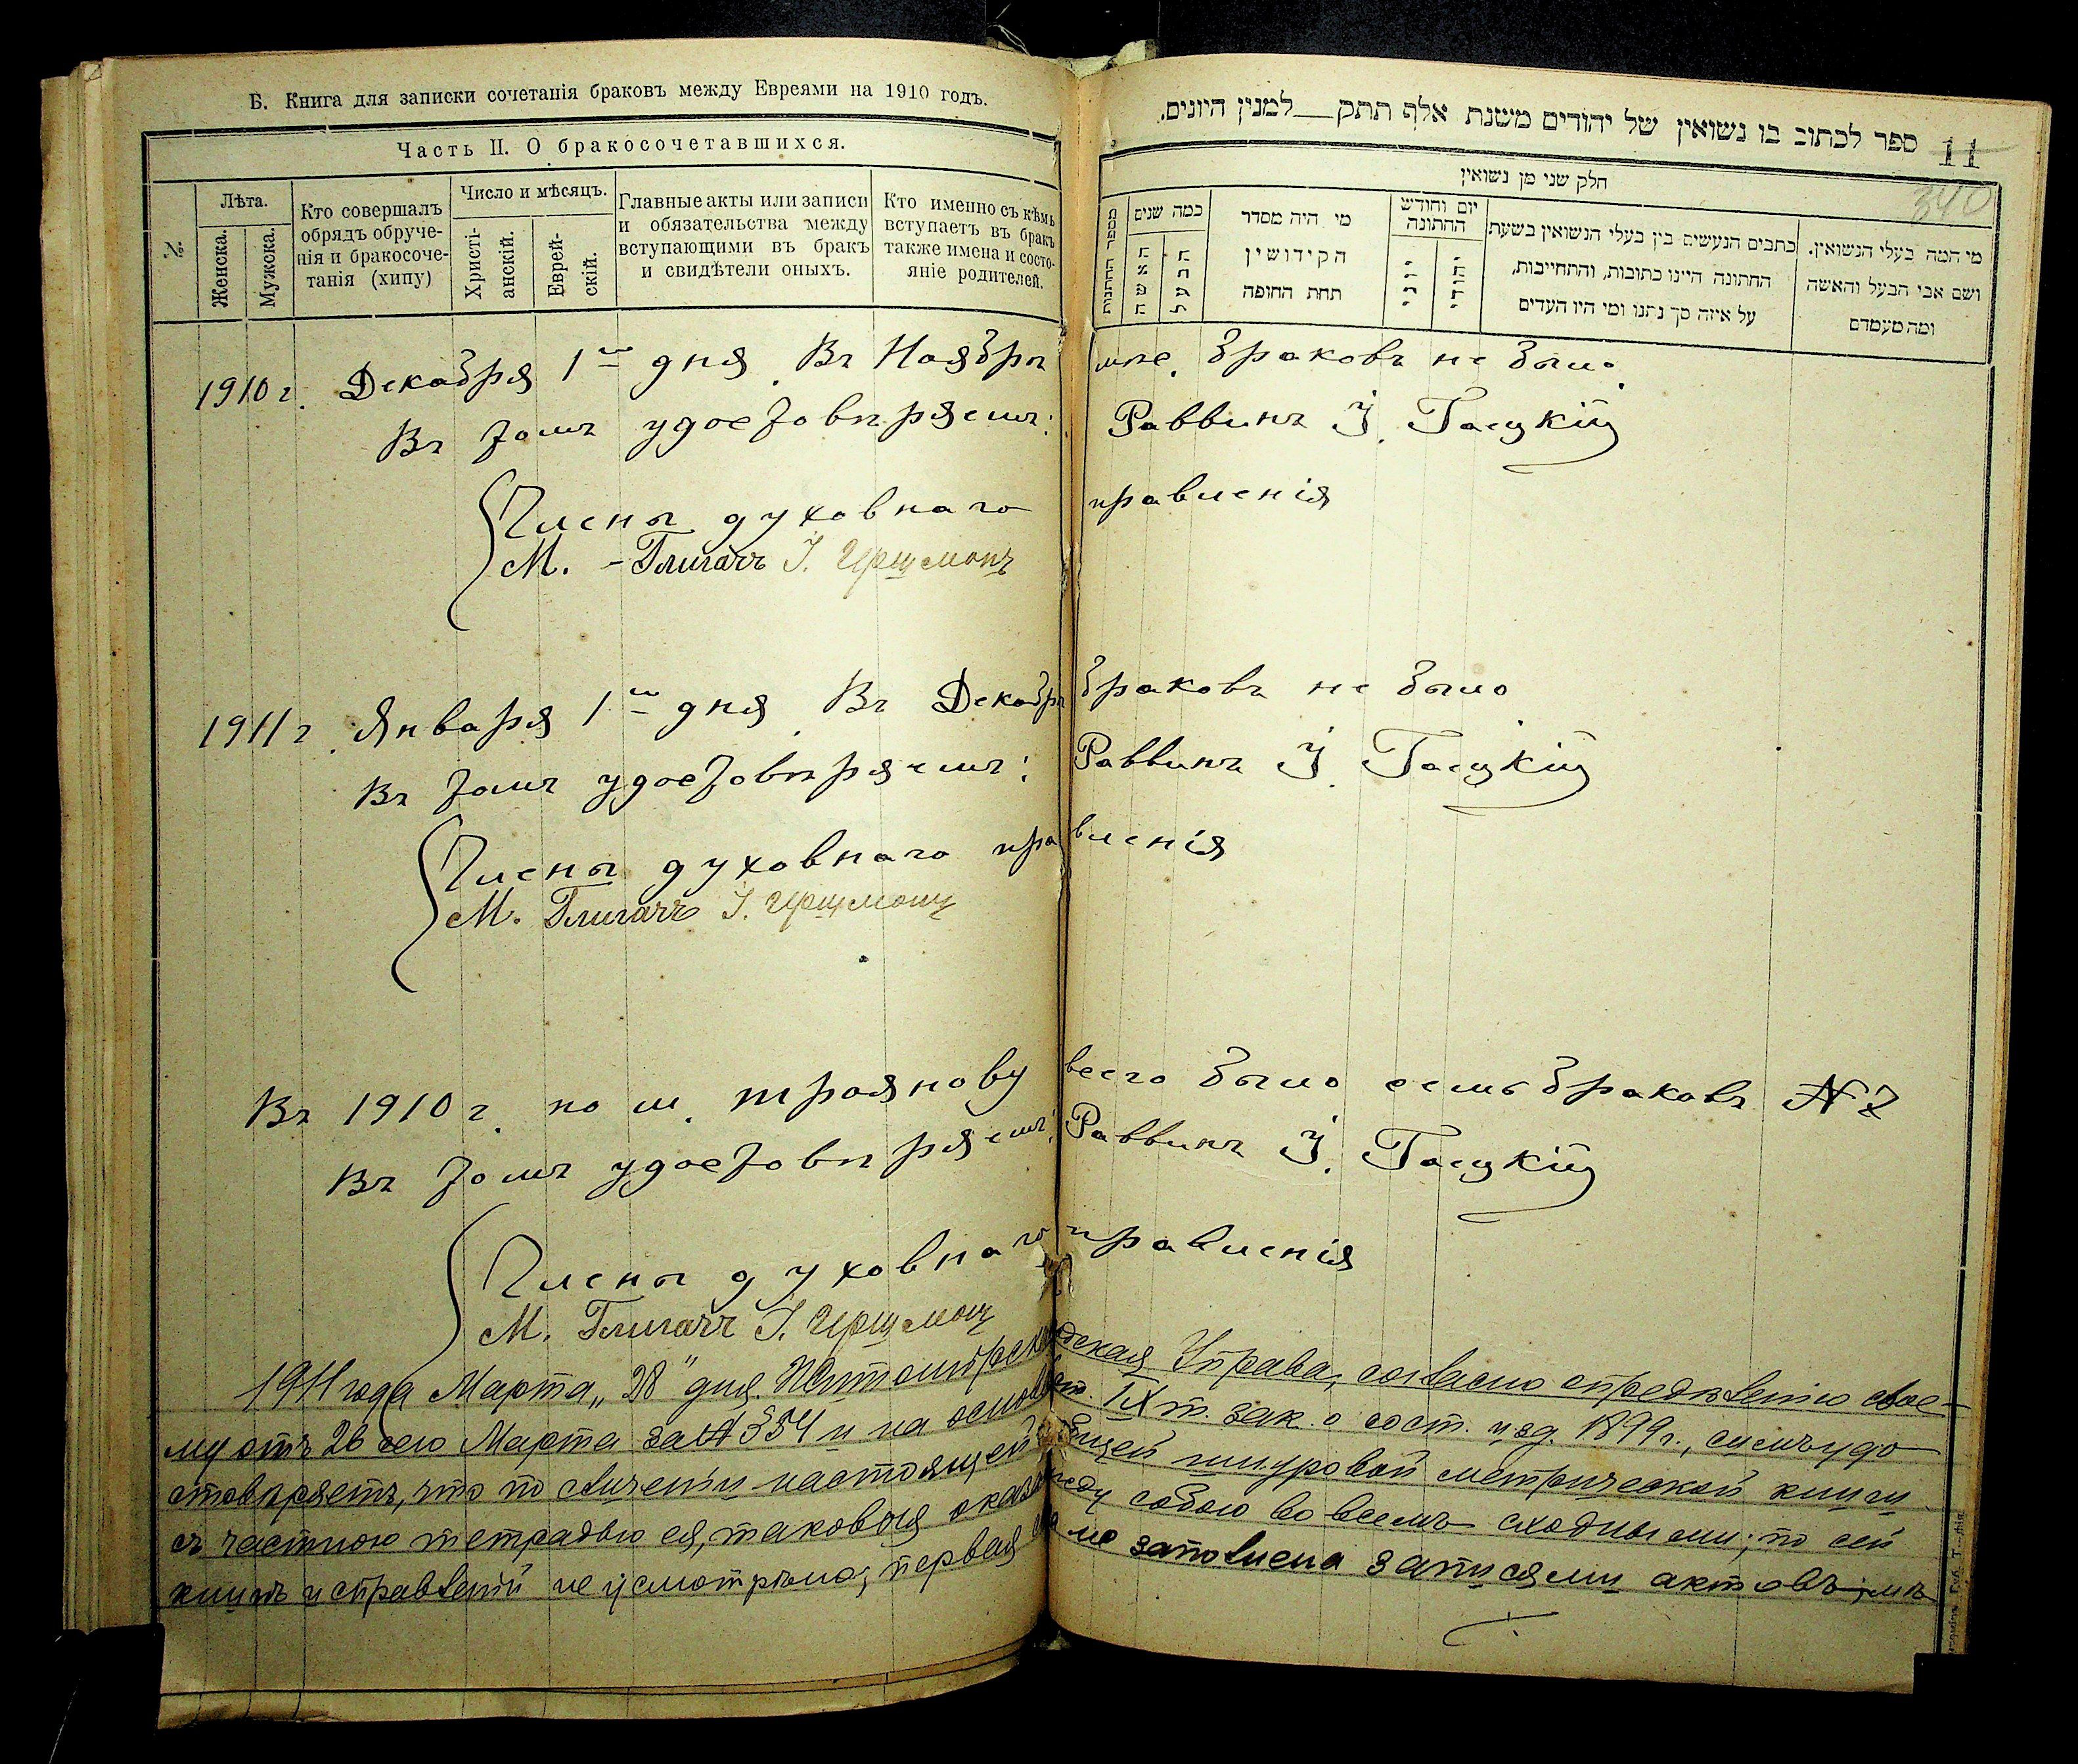 Б. Книга для записки сочетанія браковъ между Евреями на 1910 годъ.
Часть II. О бракосочетавшихся.
№
Лѣта.
Женска.
Мужска.
Кто совершалъ
обрядъ обруче-
нія и бракосоче-
танія (хипу)
Число и мѣсяцъ.
Христі-
анскій.
Еврей-
скій.
Главные акты или записи
и обязательства между
вступающими въ бракъ
и свидѣтели оныхъ.
Кто именно съ кѣмъ
вступаетъ въ бракъ
также имена и состо-
яніе родителей.
ספר לכתוב בו נשואין של יהודים משנת אלף תתק__למנין היונים.
11
340
חלק שני מן נשואין
מספר החתונות
כמה שנים
האשה
הבעל
מי היה מסדר
הקידושין
תחת החופה
יום וחודש
החתונה
יוני
יהודי
כתבים הנעשים בין בעלי הנשואין בשעת
החתונה היינו כתובות, והתחייבות,
על איזה סך נתנו ומי היו העדים
מי המה בעלי הנשואין.
ושם אבי הבעל והאשה
ומה מעמדם
1910 г. Декабря 1го дня. Въ Ноябрѣ мѣс. браковъ не было.
Въ томъ удостовѣряемъ: Раввинъ І.
Члены духовнаго правленія
М. Глигачъ І.
1911 г. Января 1го дня. Въ Декабрѣ браковъ не было.
Въ томъ удостовѣряемъ: Раввинъ І.
Члены духовнаго правленія
М. Глигачъ І.
Въ 1910 г. по м. Троянову всего было семь браковъ № 7
Въ томъ удостовѣряемъ: Раввинъ І.
Члены духовнаго правленія
М. Глигачъ І.
1911 года Марта „28" дня. Житомірская Городская Управа, согласно опредѣленію свое-
му отъ 26 сего Марта за № 354 и на основ. IX т. зак. о сост. изд. 1899 г., симъ удо
стовѣряетъ, что по сличеніи настоящей общей шнуровой метрической книги
съ частною тетрадью ея, таковыя оказались между собою во всемъ сходными; по сей
книгѣ исправленій не усмотрѣно; первая заполнена записями актовъ;